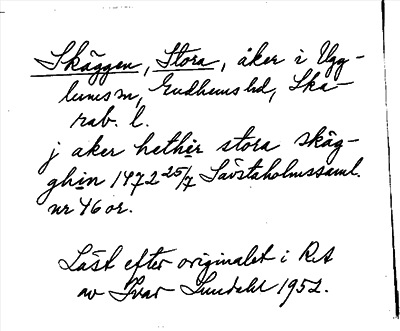 Skäggen, Stora, åker i Ugg-
lums sn, Gudhems hd, Ska-
rab. l.
j aker hethir stora skäg-
ghin 1472 25/7 Sävstaholmssaml.
nr 46 or.
Läst efter originalet i RA
av Ivar Lundahl 1952.